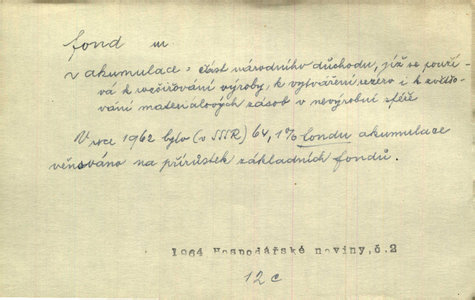 fond m
v akumulace: část národního důchodu, jíž se použí-
vá k rozšiřování výroby, k vytváření rezerv i k zvětšo-
vání materiálových zásob v nevýrobní sféře
V roce 1962 bylo (v SSSR) 64,1% fondu akumulace
věnováno na přírůstek základních fondů.
1964 Hospodářské noviny, č.2
12 c